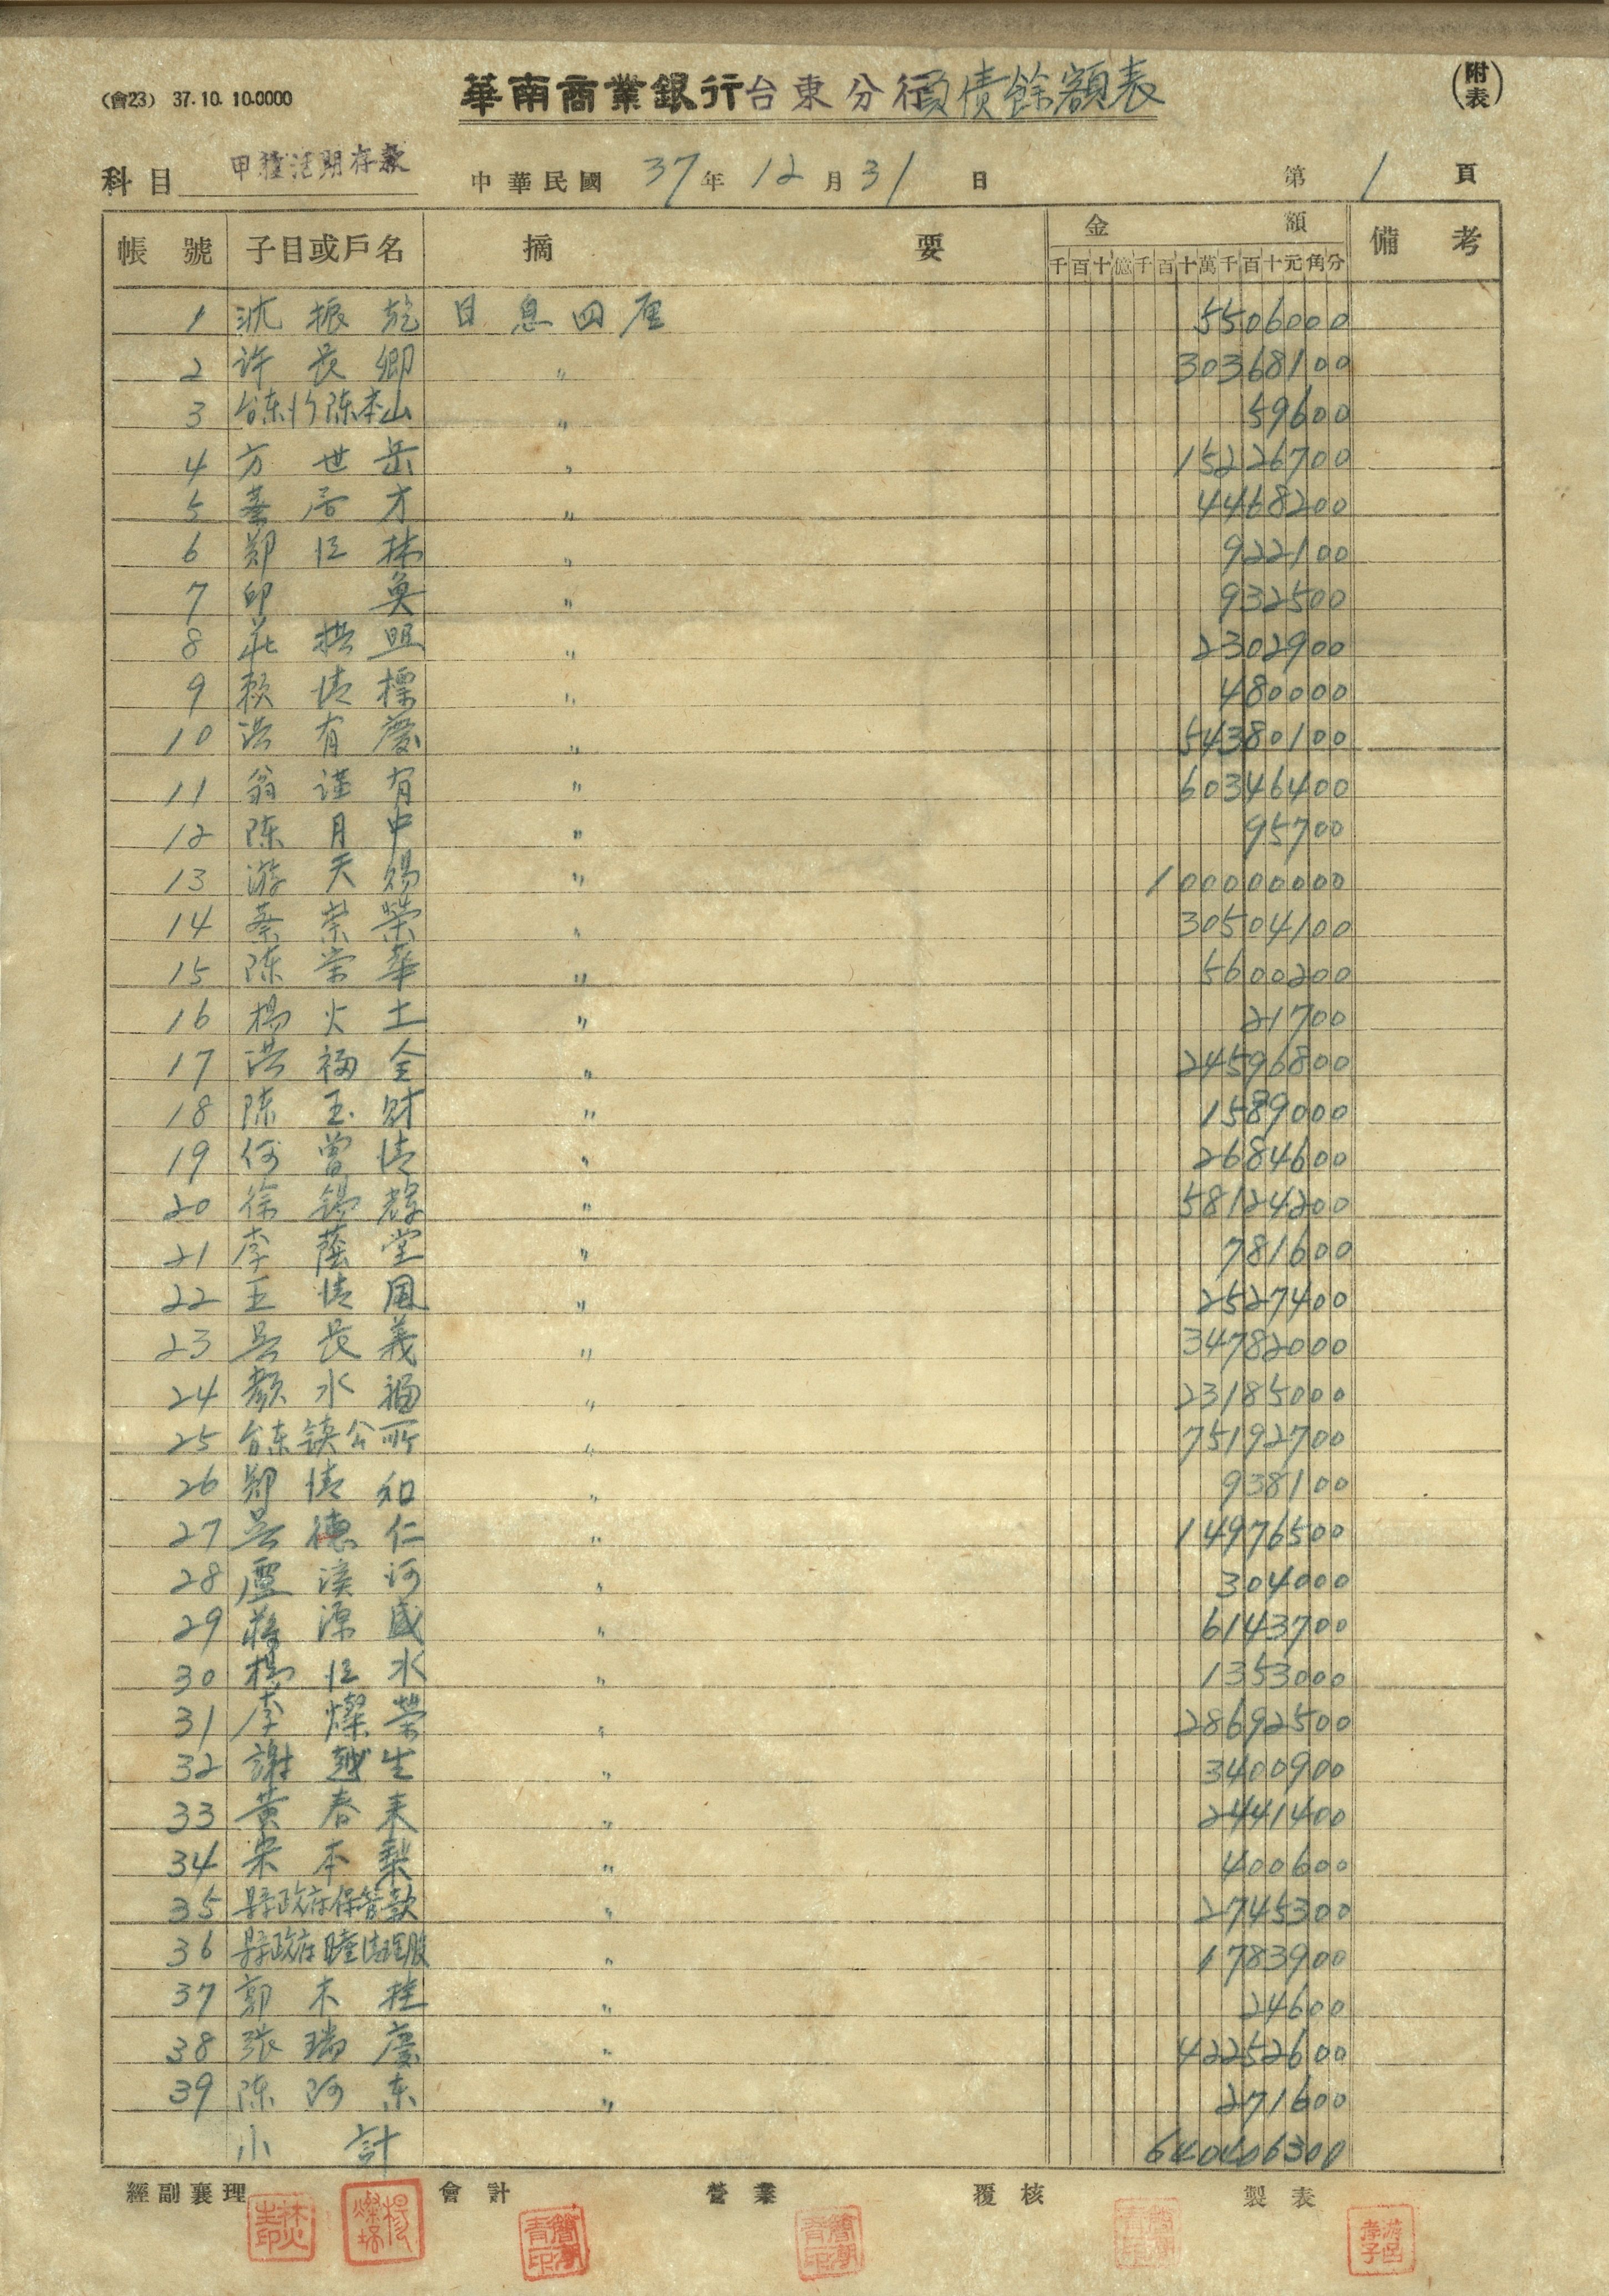 (會23) 37.10.10.0000
華南商業銀行台東分行負債餘額表
(附表)
科目 甲種活期存款 中華民國 37年 12月 31日 第 1 頁
帳號 子目或戶名 摘要 金額 備考
千百十億千百十萬千百十元角分
1 沈振乾 日息四厘 5506000
2 许長卿 〃 30368100
3 台東竹陈本山 〃 59600
4 方世岳 〃 15226700
5 居才 〃 4468200
6 郑江林 〃 922100
7 邱奐 〃 932500
8 莊拱照 〃 2302900
9 赖清標 〃 480000
10 洪有慶 〃 54380100
11 翁谨有 〃 60346400
12 陈月中 〃 95700
13 游天賜 〃 100000000
14 蔡荣榮 〃 30504100
15 陈崇華 〃 5600200
16 楊火土 〃 21700
17 洪福全 〃 24596800
18 陈玉財 〃 1589000
19 何曾清 〃 2684600
20 徐錫輝 〃 58124200
21 李蔭堂 〃 781600
22 王清風 〃 2527400
23 吴長義 〃 34782000
24 顏水福 〃 23185000
25 台东鎮公所 〃 75192700
26 郑清和 〃 938100
27 吴德仁 〃 14976500
28 盧溪河 〃 304000
29 蔣源盛 〃 6143700
30 楊江水 〃 1353000
31 李燦榮 〃 28692500
32 謝越生 〃 3400900
33 黄春来 〃 2441400
34 宋本梨 〃 400600
35 县政府保管款 〃 2745300
36 县政府日產清理股 〃 1783900
37 郭木桂 〃 24600
38 张瑞慶 〃 42252600
39 陈阿东 〃 271600
小計 640406300
經副襄理 會計 營業 覆核 製表